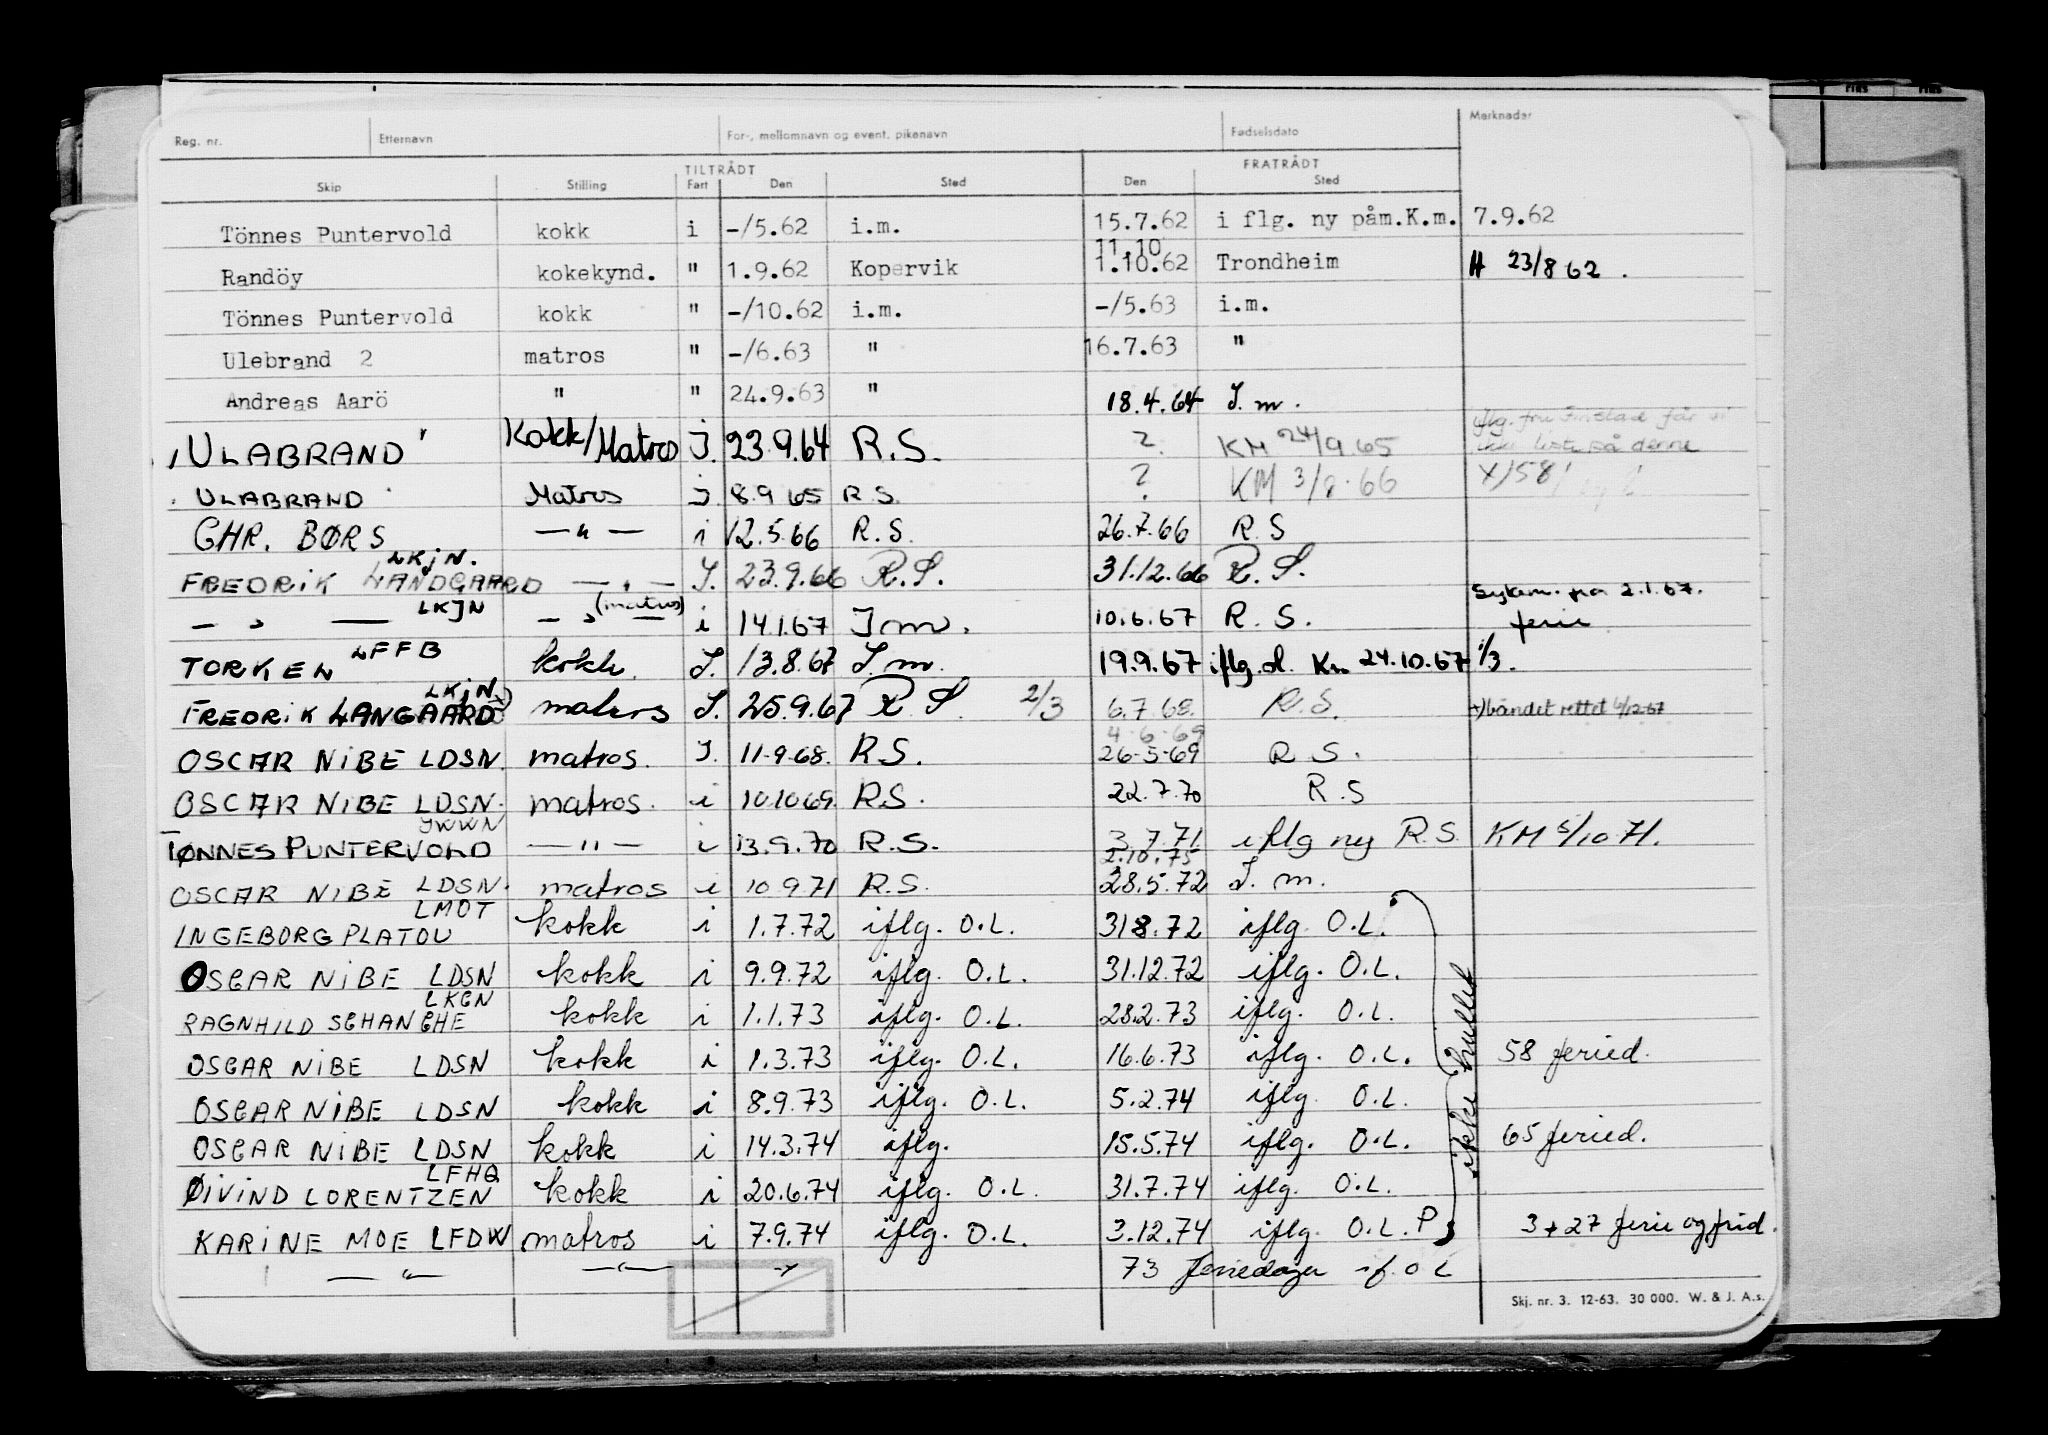 Reg. nr. Etternavn For-, mellomnavn og event. pikenavn Fødselsdato Merknader
TILTRÅDT FRATRÅDT
Skip Stilling Fart Den Sted Den Sted
Tönnes Puntervold kokk i -/5.62 i.m. 15.7.62 i flg. ny påm.K.m. 7.9.62
11.10
Randöy kokekynd. " 1.9.62 Kopervik 1.10.62 Trondheim H 23/8 62.
Tönnes Puntervold kokk " -/10.62 i.m. -/5.63 i.m.
Ulebrand 2 matros " -/6.63 " 16.7.63 "
Andreas Aarö " " 24.9.63 " 18.4.64 I.m.
"ULABRAND" Kokk/Matros I. 23.9.64 R.S. ? KM 24/9 65 iflg. fru får vi ikke liste på denne
ULABRAND Matros I 8.9 65 R.S. ? KM 3/8.66 X/58
CHR. BØRS — " — i 12.5.66 R.S. 26.7.66 R.S
LKJN.
FREDRIK LANDGAARD — " — I. 23.9.66 R.S. 31.12.66 R.S.
LKJN (matros) Sykem. fra 2.1.67.
— " — — " — i 14.1.67 I m. 10.6.67 R.S. ferie
TORKEL LFFB kokk. I. 13.8.67 I.m. 19.9.67 iflg.d. Km 24.10.67 1/3.
LKJN
FREDRIK LANGAARD x) matros I. 25.9.67 R S. 2/3 6.7.68. R.S. x) båndet rettet 6/12-67
4-6-69
OSCAR NIBE LDSN. matros. I. 11-9-68. R.S. 26-5-69 R S.
OSCAR NIBE LDSN. matros. i 10.10 69. R.S. 22.7.70 R.S
JWWN
TØNNES PUNTERVOLD — " — i 13.9.70 R.S. 3.7.71 iflg ny R.S. KM 5/10 71.
2.10.75
OSCAR NIBE LDSN. matros i 10.9.71 R.S. 28.5.72 I.m.
LMOT
INGEBORG PLATOU kokk i 1.7.72 iflg. O.L. 31.8.72 iflg. O.L.
OSCAR NIBE LDSN kokk i 9.9.72 iflg. O.L. 31.12.72 iflg. O.L.
LKGN
RAGNHILD SCHANCHE kokk i 1.1.73 iflg. O.L. 28.2.73 iflg. O.L.
OSCAR NIBE LDSN kokk i 1.3.73 iflg. O.L. 16.6.73 iflg. O.L. 58 feried.
OSCAR NIBE LDSN kokk i 8.9.73 iflg. O.L. 5.2.74 iflg. O.L.
OSCAR NIBE LDSN kokk i 14.3.74 iflg. 15.5.74 iflg. O.L. 65 feried.
LFHQ
ØIVIND LORENTZEN kokk i 20.6.74 iflg. O.L. 31.7.74 iflg. O.L.
KARINE MOE LFDW matros i 7.9.74 iflg. O.L. 3.12.74 iflg. O.L. P 3+27 ferie og frid.
ikke hullet
— " — — " — 73 feriedager if. O L
Skj. nr. 3. 12-63. 30 000. W. & J. A.s.